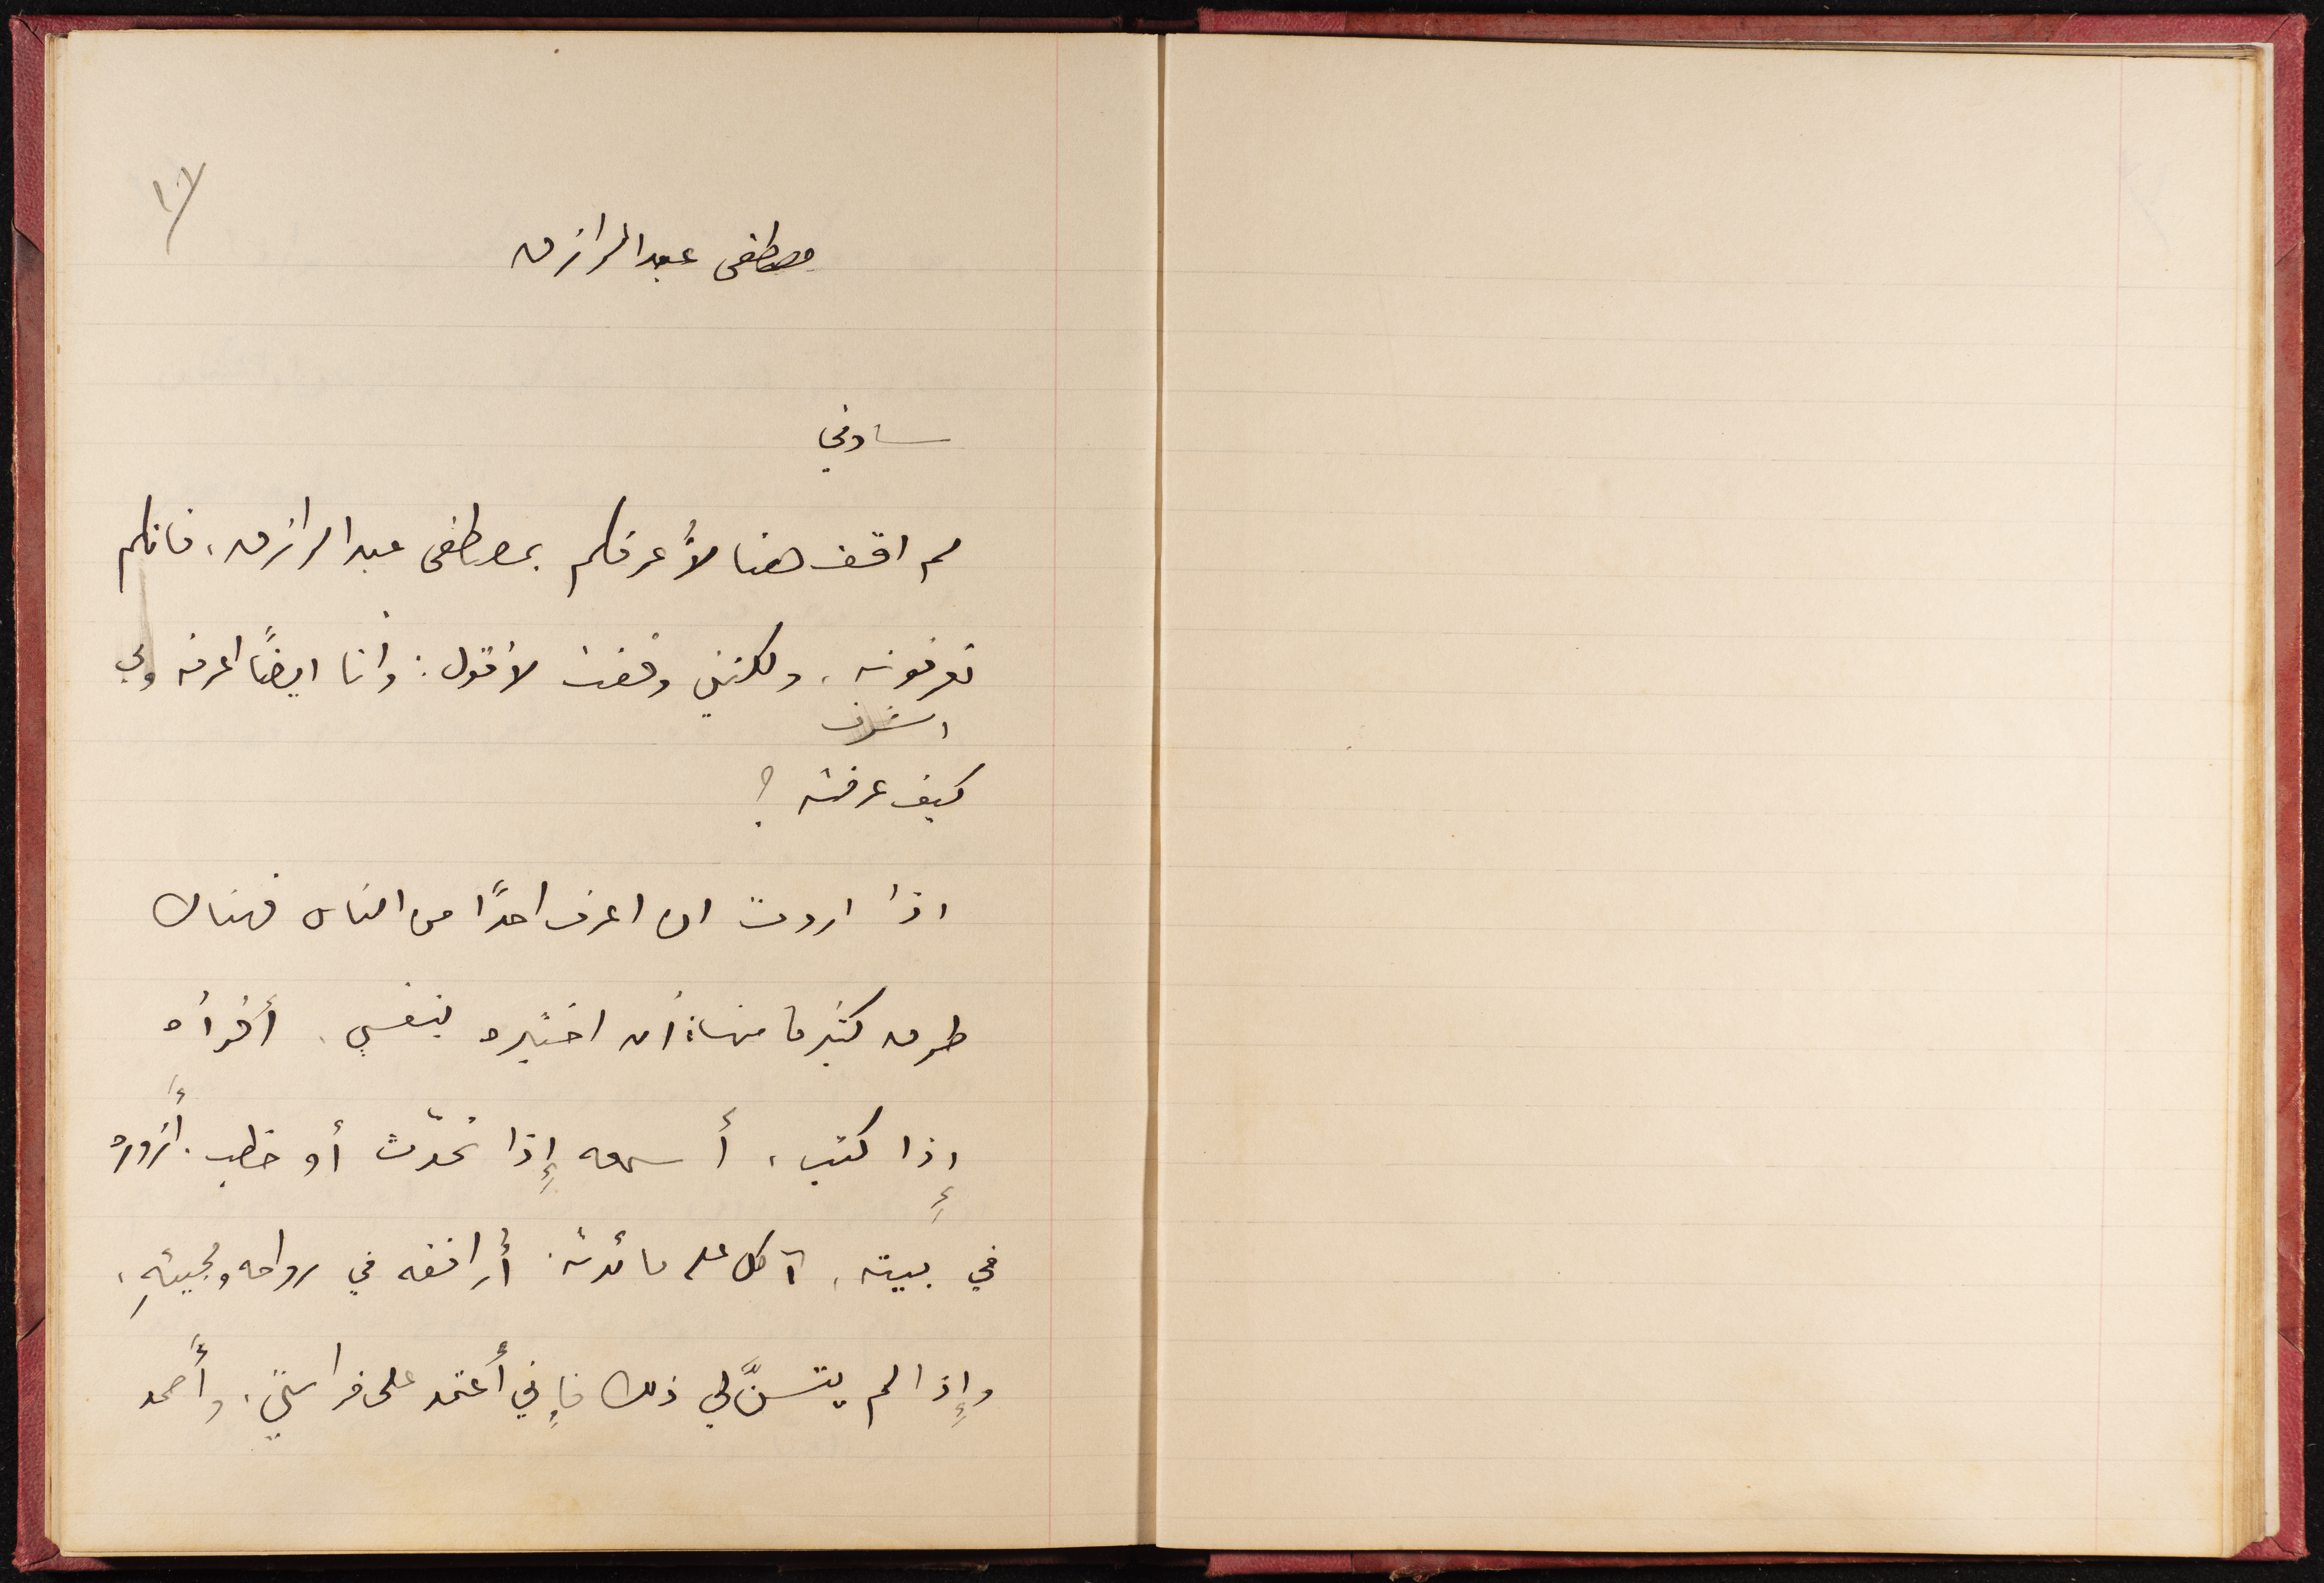 مصطفى عبد الرازق
سادتي
لم اقف هنا لأعرفكم بمصطفى عبد الرازق، فانكم
تعرفونه، ولكنني وقفت لأقول: وانا ايضًا اعرفه ولي
الشرف
كيف عرفته؟
اذا اردت ان اعرف احدًا من الناس فهناك
طرق كثيرة منها: أن اختبره بنفسي، أقرأه
إذا كتب، أسمعه إذا تحدّث أو خطب. أزوره
في بيته، آكل على مائدته. أرافقه في رواحه ومجيئهِ،
وإذا لم يتسنَّ لي ذلك فإني أعتمد على فراستي، وأعمد